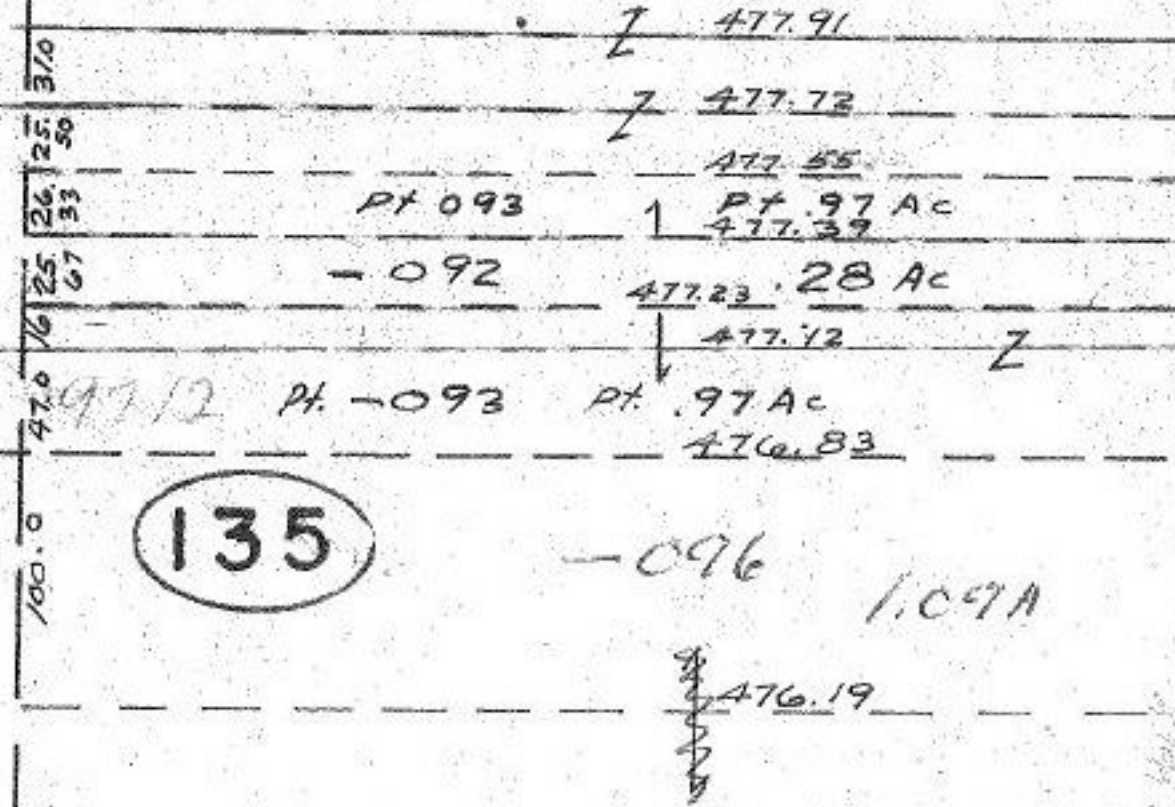 477.91
31.0
477.72
25.50
477.55
26.33
Pt 093
Pt .97 Ac
477.39
25.67
-092
477.23
.28 Ac
16
477.12
47.0
97.12
Pt. -093
Pt. .97 Ac
476.83
100.0
135
-096
1.09A
476.19